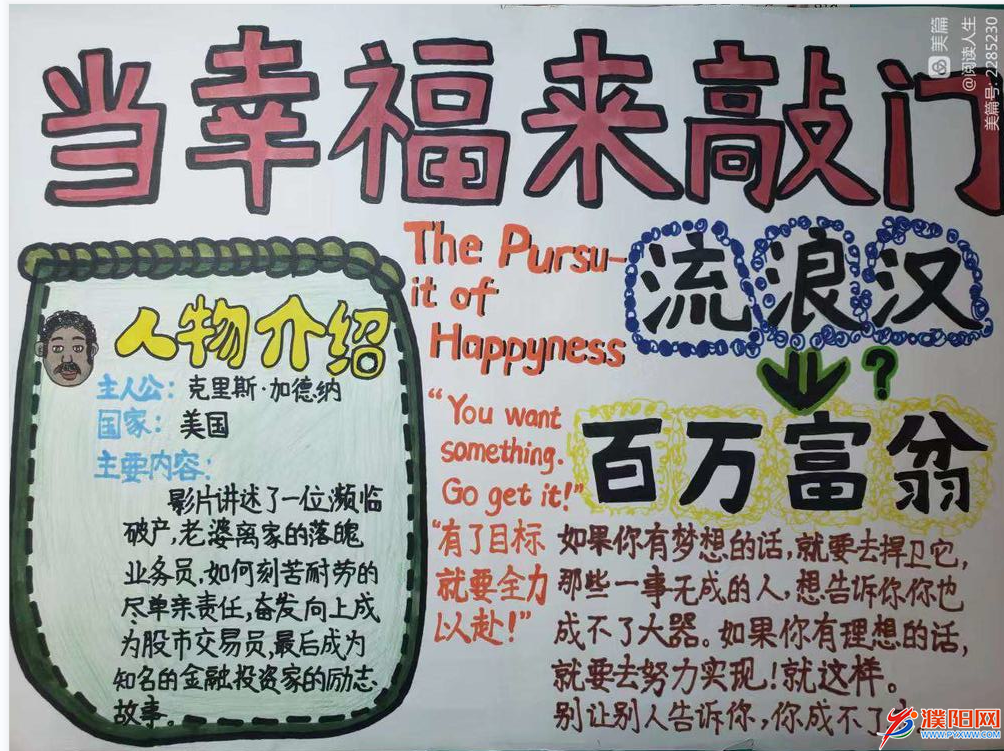 当幸福来敲门
美篇
@阅读人生
美篇号: 2285230
The Pursu-
it of
Happyness
流浪汉
?
百万富翁
人物介绍
主人公：克里斯·加德纳
国家：美国
主要内容：
影片讲述了一位濒临
破产,老婆离家的落魄
业务员,如何刻苦耐劳的
尽单亲责任,奋发向上成
为股市交易员,最后成为
知名的金融投资家的励志
故事。
“You want
something.
Go get it!”
“有了目标
就要全力
以赴!”
如果你有梦想的话,就要去捍卫它,
那些一事无成的人,想告诉你你也
成不了大器。如果你有理想的话,
就要去努力实现!就这样。
别让别人告诉你,你成不了
濮阳网
WWW.PYXWW.COM